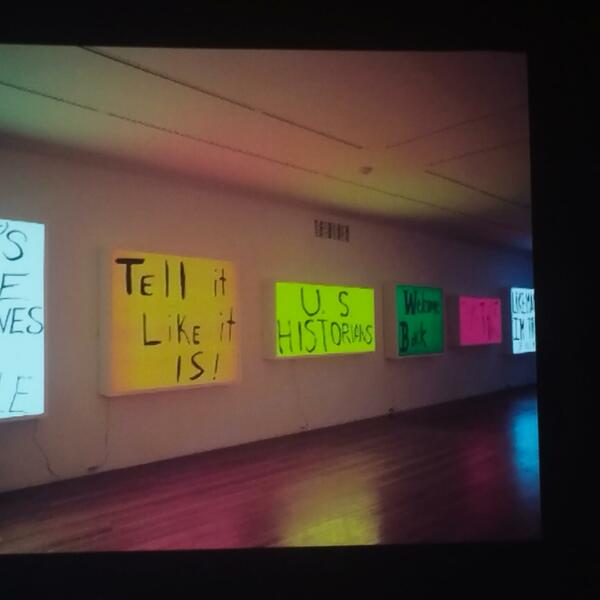 'S
E
VES
LE
TEll it
LiKE it
IS!
U. S
HISTORIANS
Welcome
Back
I'M